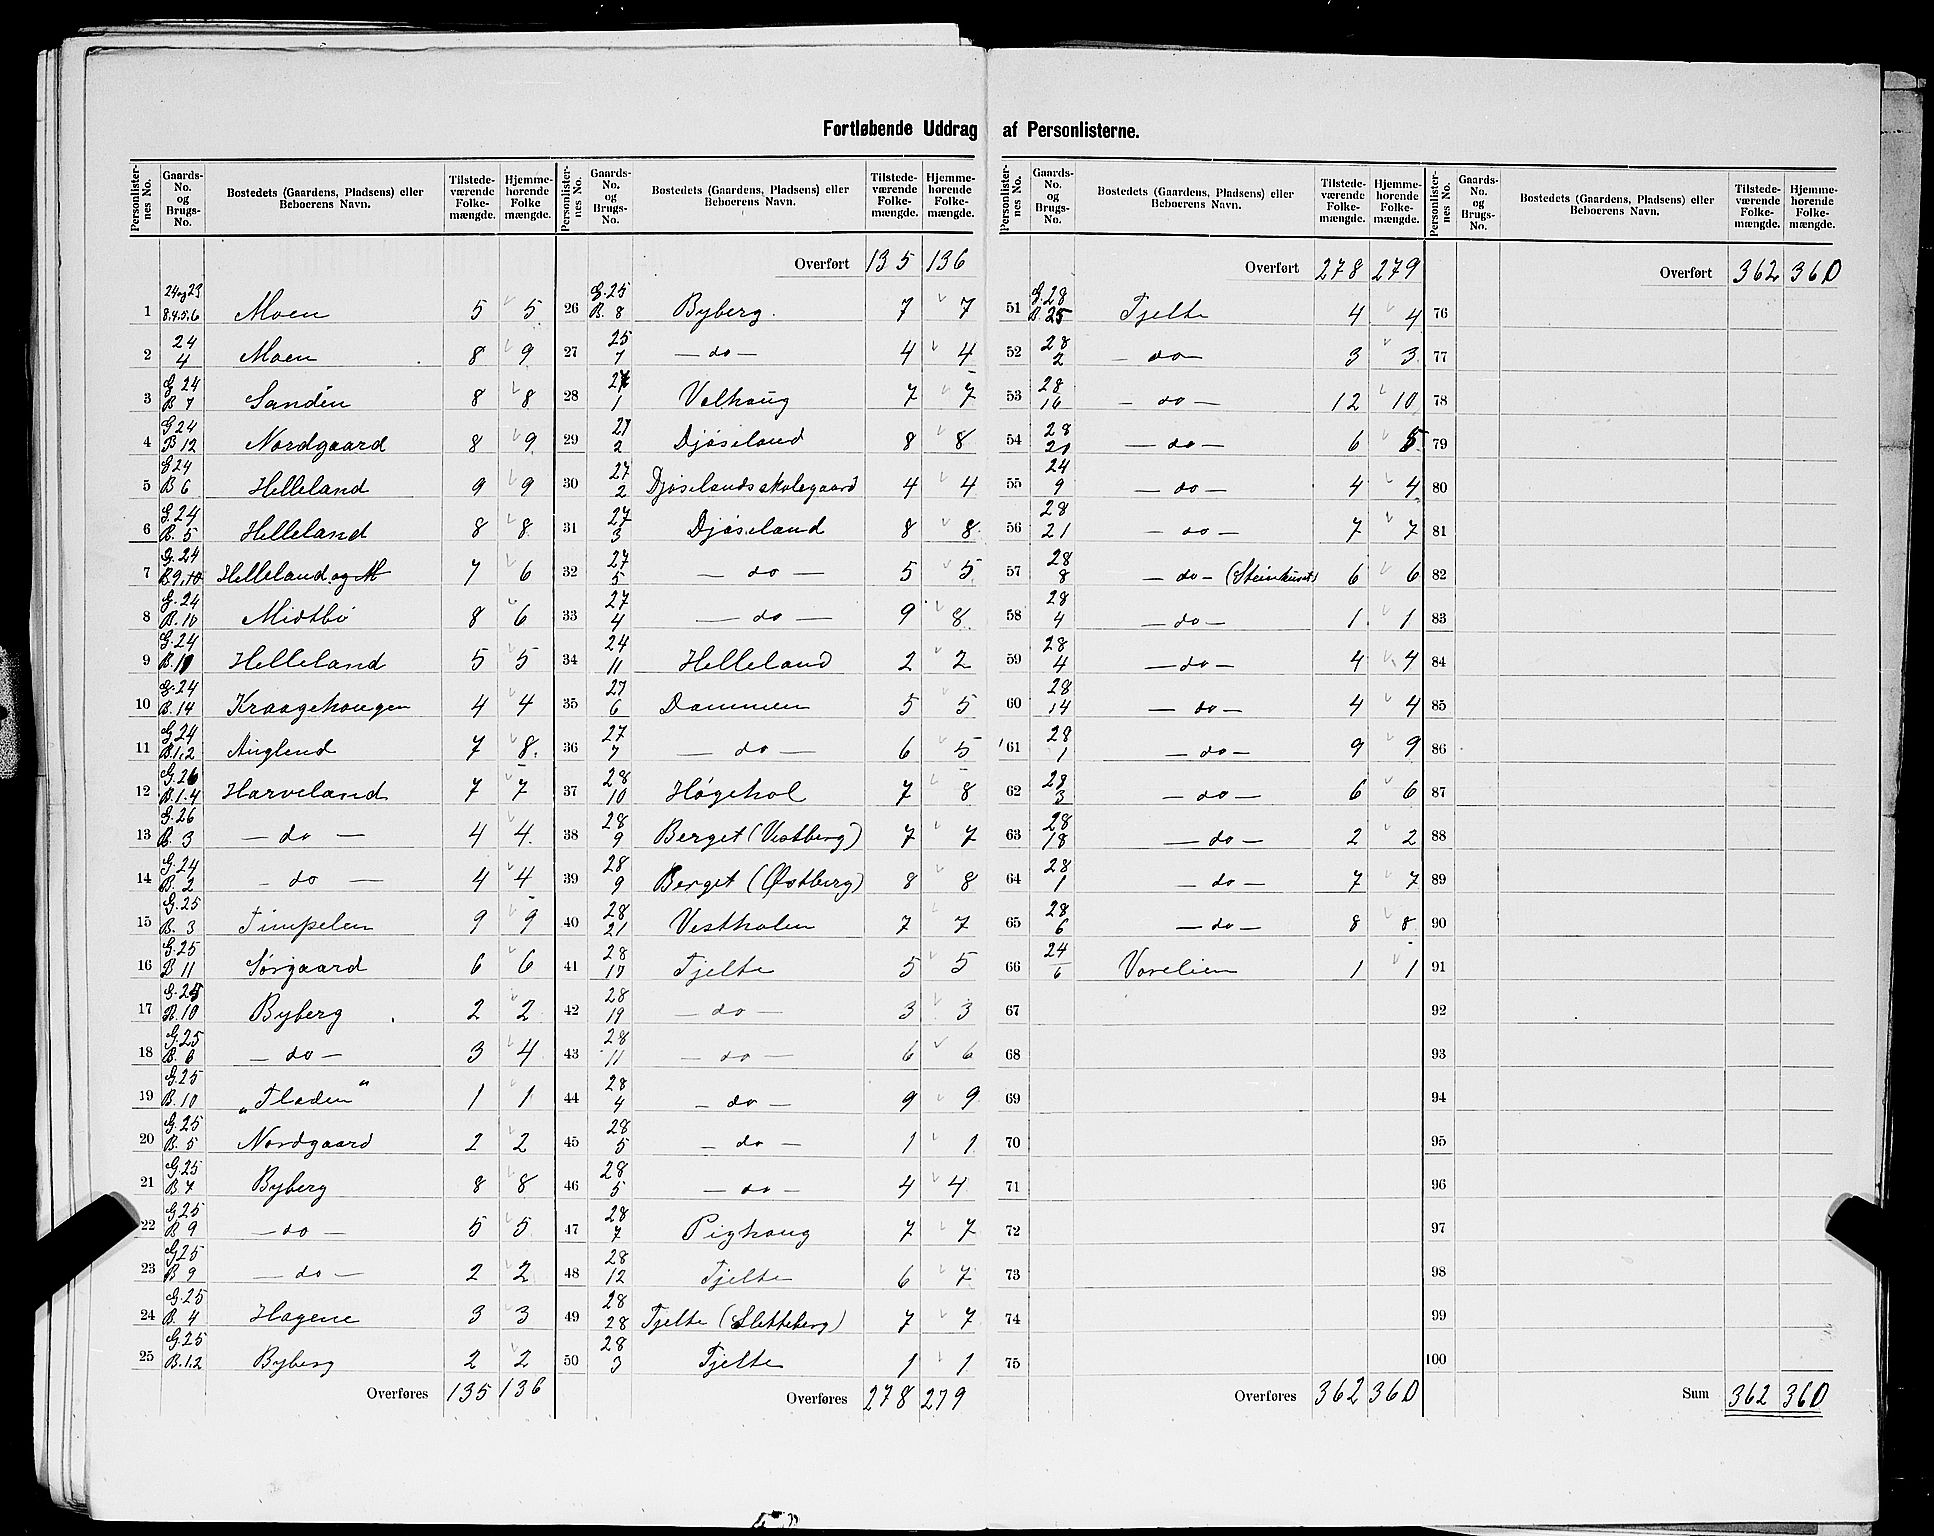 Fortløbende Uddrag af Personlisterne.
Personlisternes No. | Gaards-No. og Brugs-No. | Bostedets (Gaardens, Pladsens) eller Beboerens Navn. | Tilstedeværende Folkemængde. | Hjemmehørende Folkemængde.
1 | 24 og 23 8,4,5,6 | Moen | 5 | 5
2 | 24 4 | Moen | 8 | 9
3 | G 24 B 7 | Sanden | 8 | 8
4 | G 24 B 12 | Nordgaard | 8 | 9
5 | G 24 B 6 | Helleland | 9 | 9
6 | G. 24 B. 5 | Helleland | 8 | 8
7 | G. 24 B 9, 10 | Helleland og M | 7 | 6
8 | G. 24 B. 16 | Midtbö | 8 | 6
9 | G. 24 B. 11 | Helleland | 5 | 5
10 | G. 24 B. 14 | Kraagehaugen | 4 | 4
11 | G 24 B. 1,2 | Auglend | 7 | 8
12 | G. 26 B. 1.4 | Harveland | 7 | 7
13 | G. 26 B. 3 | — do — | 4 | 4
14 | G. 24 B. 2 | — do — | 4 | 4
15 | G. 25 B. 3 | Timpelen | 9 | 9
16 | G. 25 B 11 | Sørgaard | 6 | 6
17 | G. 25 B. 10 | Byberg | 2 | 2
18 | G. 25 B. 6 | — do — | 3 | 4
19 | G. 25 B. 10 | „Fladen“ | 1 | 1
20 | G. 25 B. 5 | Nordgaard | 2 | 2
21 | G. 25 B 7 | Byberg | 8 | 8
22 | G 25 B 9 | — do — | 5 | 5
23 | G 25 B 9 | — do — | 2 | 2
24 | G. 25 B. 4 | Hagene | 3 | 3
25 | G. 25 B. 1.2 | Byberg | 2 | 2
Overføres | 135 | 136
Personlisternes No. | Gaards-No. og Brugs-No. | Bostedets (Gaardens, Pladsens) eller Beboerens Navn. | Tilstedeværende Folkemængde. | Hjemmehørende Folkemængde.
Overført | 135 | 136
26 | G. 25 B. 8 | Byberg. | 7 | 7
27 | 25 7 | — do — | 4 | 4
28 | 27 1 | Valhaug | 7 | 7
29 | 27 2 | Djøseland | 8 | 8
30 | 27 2 | Djøselandsskolegaard | 4 | 4
31 | 27 3 | Djøseland | 8 | 8
32 | 27 5 | — do — | 5 | 5
33 | 27 4 | — do — | 9 | 8
34 | 24 11 | Helleland | 2 | 2
35 | 27 6 | Dammen | 5 | 5
36 | 27 7 | — do — | 6 | 5
37 | 28 10 | Høgehol | 7 | 8
38 | 28 9 | Berget (Vestberg) | 7 | 7
39 | 28 9 | Berget (Østberg) | 8 | 8
40 | 28 21 | Vestholen | 7 | 7
41 | 28 17 | Tjelte | 5 | 5
42 | 28 19 | — do — | 3 | 3
43 | 28 11 | — do — | 6 | 6
44 | 28 4 | — do — | 9 | 9
45 | 28 5 | — do — | 1 | 1
46 | 28 5 | — do — | 4 | 4
47 | 28 7 | Pighaug | 7 | 7
48 | 28 12 | Tjelte | 6 | 7
49 | 28 28 | Tjelte (Sletteberg) | 7 | 7
50 | 28 3 | Tjelte | 1 | 1
Overføres | 278 | 279
Personlisternes No. | Gaards-No. og Brugs-No. | Bostedets (Gaardens, Pladsens) eller Beboerens Navn. | Tilstedeværende Folkemængde. | Hjemmehørende Folkemængde.
Overført | 278 | 279
51 | G. 28 B. 25 | Tjelte | 4 | 4
52 | 28 2 | — do — | 3 | 3
53 | 28 16 | — do — | 12 | 10
54 | 28 20 | — do — | 6 | 5
55 | 24 9 | — do — | 4 | 4
56 | 28 21 | — do — | 7 | 7
57 | 28 8 | — do — (Steinhuset) | 6 | 6
58 | 28 4 | — do — | 1 | 1
59 | 28 4 | — do — | 4 | 4
60 | 28 14 | — do — | 4 | 4
61 | 28 1 | — do — | 9 | 9
62 | 28 3 | — do — | 6 | 6
63 | 28 18 | — do — | 2 | 2
64 | 28 1 | — do — | 7 | 7
65 | 28 6 | — do — | 8 | 8
66 | 24 6 | Varelien | 1 | 1
67
68
69
70
71
72
73
74
75
Overføres | 362 | 360
Personlisternes No. | Gaards-No. og Brugs-No. | Bostedets (Gaardens, Pladsens) eller Beboerens Navn. | Tilstedeværende Folkemængde. | Hjemmehørende Folkemængde.
Overført | 362 | 360
76
77
78
79
80
81
82
83
84
85
86
87
88
89
90
91
92
93
94
95
96
97
98
99
100
Sum | 362 | 360